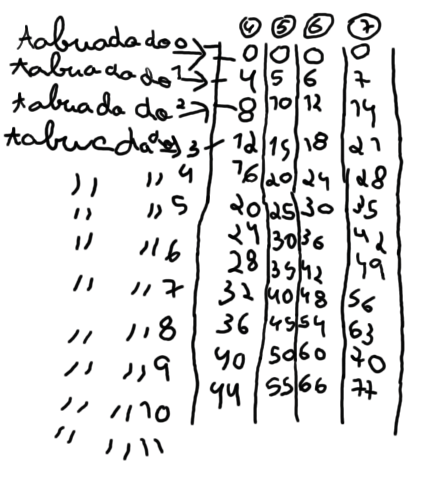 ④ ⑤ ⑥ ⑦
Tabuada do 0 → 0 0 0 0
Tabuada do 1 → 4 5 6 7
tabuada do 2 → 8 10 12 14
tabuada do 3 - 12 15 18 21
,, ,, 4 16 20 24 28
,, ,, 5 20 25 30 35
,, ,, 6 24 30 36 42
28 35 42 49
,, ,, 7 32 40 48 56
,, ,, 8 36 45 54 63
,, ,, 9 40 50 60 70
44 55 66 77
,, ,, 10
,, ,, 11